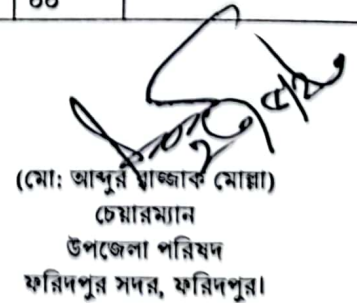 ৩৩
(মো: আব্দুর রাজ্জাক মোল্লা)
চেয়ারম্যান
উপজেলা পরিষদ
ফরিদপুর সদর, ফরিদপুর।